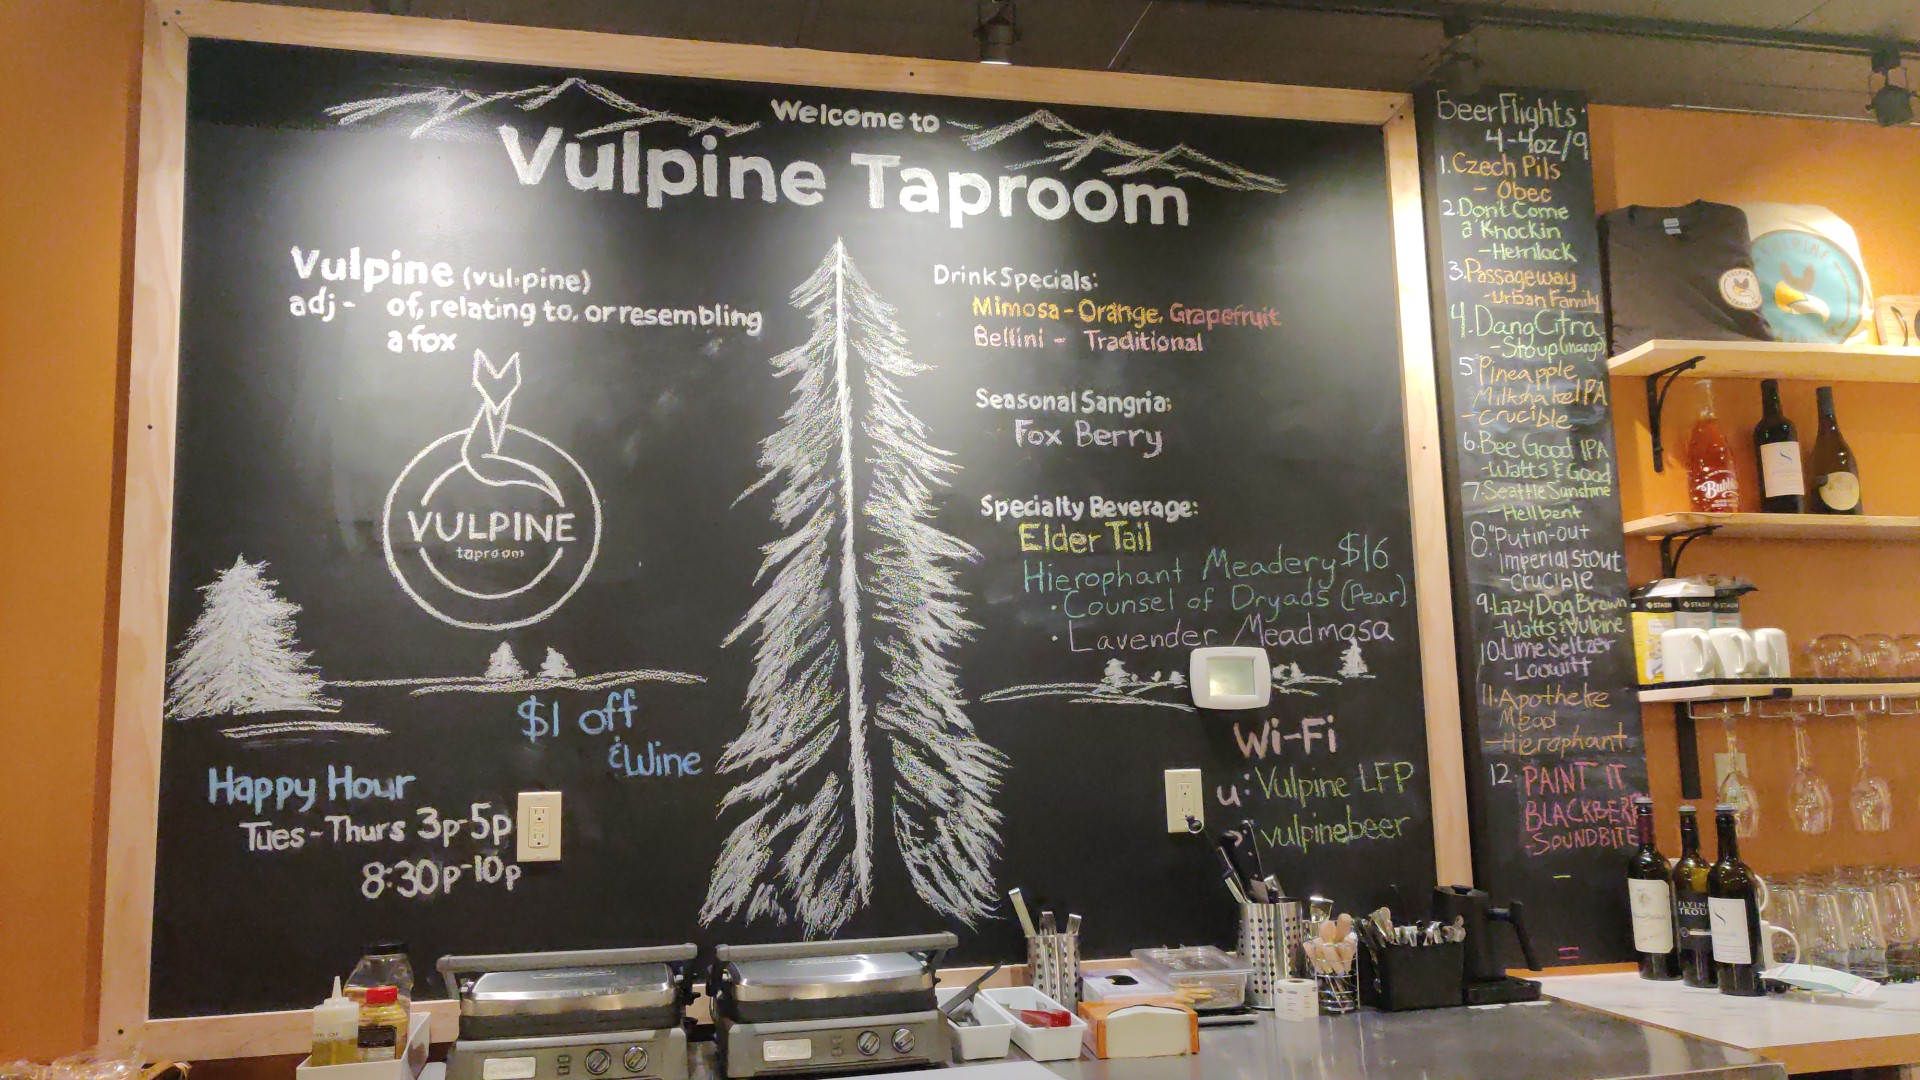 Welcome to
Vulpine Taproom
Vulpine (vul·pine)
adj - of, relating to, or resembling
a fox
VULPINE
taproom
$1 off
& Wine
Happy Hour
Tues - Thurs 3p-5p
8:30p-10p
Drink Specials:
Mimosa - Orange, Grapefruit
Bellini - Traditional
Seasonal Sangria:
Fox Berry
Specialty Beverage:
Elder Tail
Hierophant Meadery $16
· Counsel of Dryads (Pear)
· Lavender Meadmosa
Wi-Fi
u: Vulpine LFP
p: vulpinebeer
Beer Flights:
4-4oz/9
1. Czech Pils
- Obec
2. Dont Come
a' Knockin
- Hemlock
3. Passageway
- Urban Family
4. Dang Citra
- Stoup (mango)
5 Pineapple
Milkshake IPA
- Crucible
6. Bee Good IPA
- Watts & Good
7. Seattle Sunshine
- Hellbent
8. "Putin-out
Imperial Stout
- Crucible
9. Lazy Dog Brown
- Watts & Vulpine
10. Lime Seltzer
- Loowitt
11. Apotheke
Mead
- Hierophant
12. PAINT IT
BLACKBERR
- SOUNDBITE
VULPINE
STASH
STASH
Bubbl
FLYIN
TROU